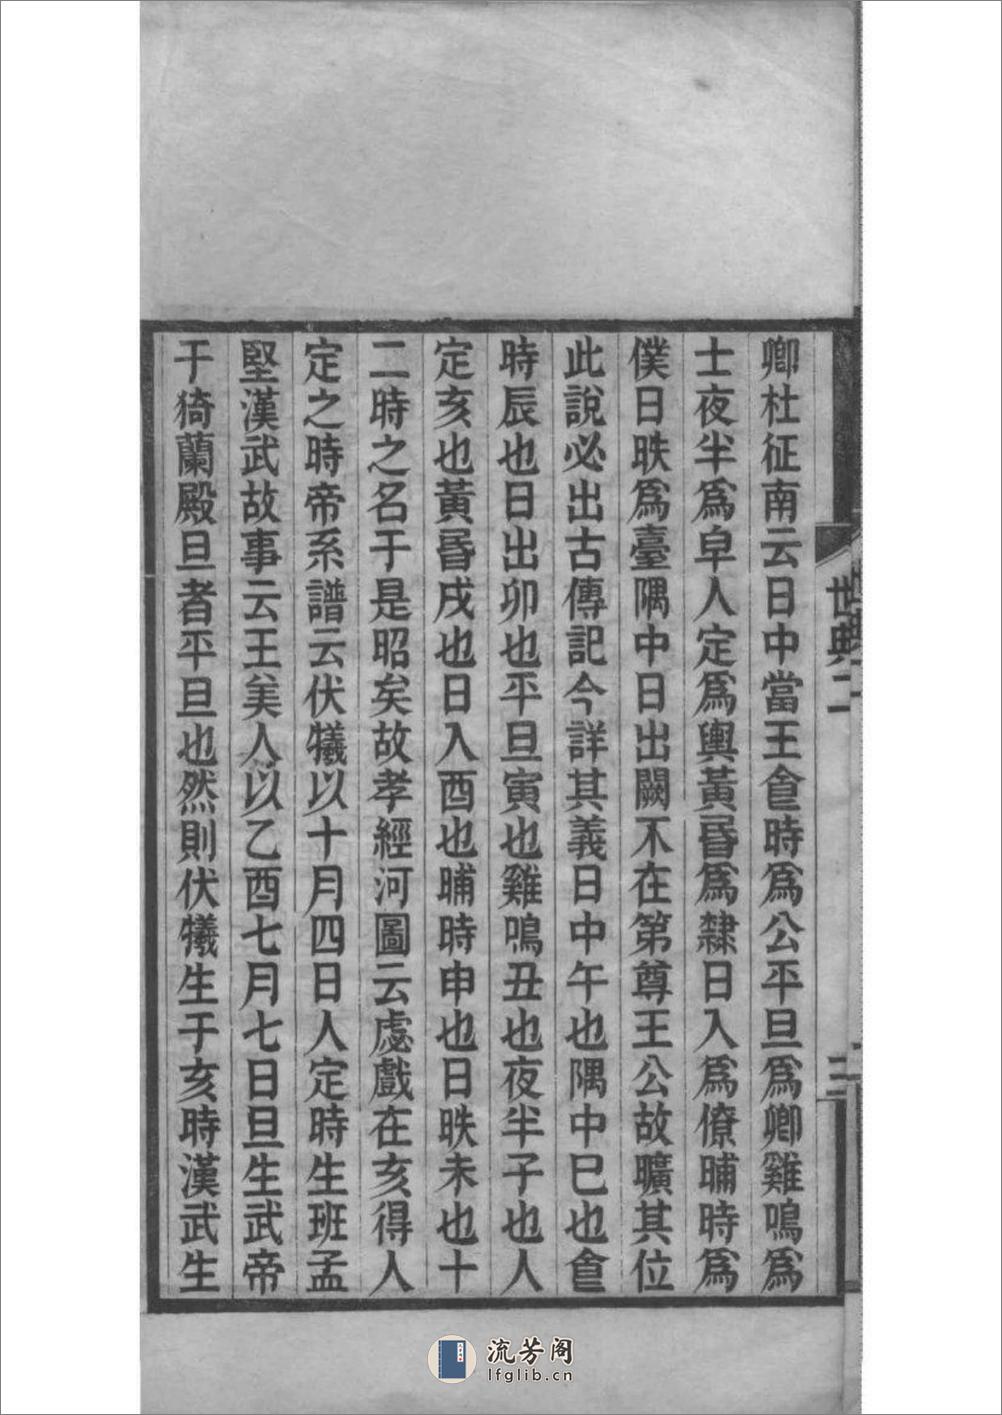 卿杜征南云日中當王食時爲公平旦爲卿雞鳴爲
士夜半爲皁人定爲輿黃昬爲隸日入爲僚晡時爲
僕日昳爲臺隅中日出闕不在第尊王公故曠其位
此說必出古傳記今詳其義日中午也隅中巳也食
時辰也日出卯也平旦寅也雞鳴丑也夜半子也人
定亥也黃昬戌也日入酉也晡時申也日昳未也十
二時之名于是昭矣故孝經河圖云虙戲在亥得人
定之時帝系譜云伏犧以十月四日人定時生班孟
堅漢武故事云王美人以乙酉七月七日旦生武帝
于猗蘭殿旦者平旦也然則伏犧生于亥時漢武生
世典二
三
流芳阁
lfglib.cn